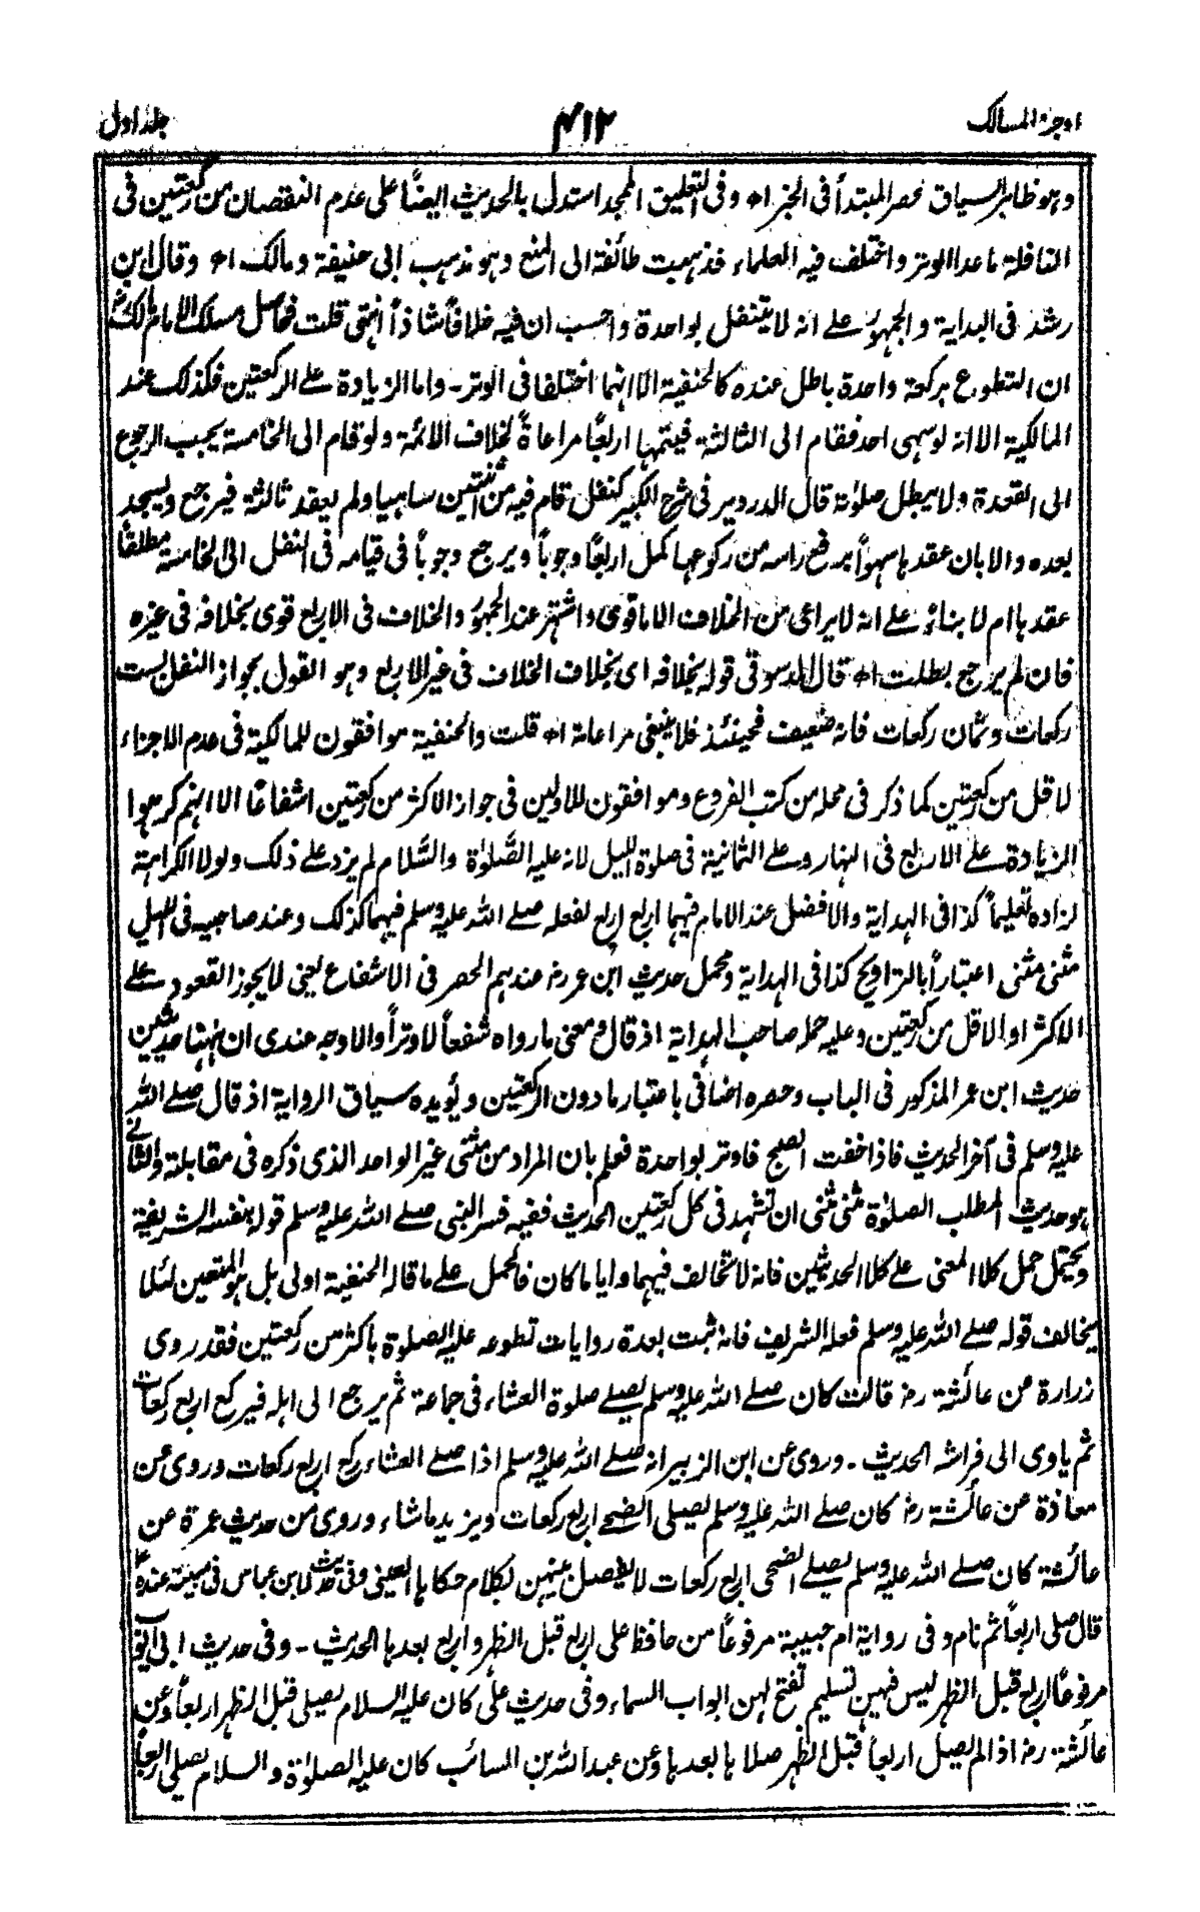 اوجز المسالک
۴۱۲
جلد اول
وہو ظاہر السیاق نحصر المبتدأ فی الخبر اھ وفی التعلیق الممجد استدل بالحدیث ایضًا علی عدم النقصان من رکعتین فی
النافلۃ ماعدا الوتر واختلف فیہ العلماء فذہبت طائفۃ الی المنع وہو مذہب ابی حنیفۃ ومالک اھ وقال ابن
رشد فی البدایۃ والجمہور علے انہ لا یتنفل بواحدۃ واحسب ان فیہ خلافًا شاذًا انتہی قلت فحاصل مسلک الامام مالکؒ
ان التطوع برکعۃ واحدۃ باطل عندہ کالحنفیۃ الا انہما اختلفا فی الوتر۔ واما الزیادۃ علے الرکعتین فکذلک عند
المالکیۃ الا انہ لو سہی احد فقام الی الثالثۃ فیتمہا اربعًا مراعاۃً لخلاف الائمۃ ولو قام الی الخامسۃ یجب الرجوع
الی القعدۃ ولا یبطل صلوٰتہ قال الدردیر فی شرح الکبیر کنفل قام فیہ من اثنتین ساہیا ولم یعقد ثالثۃ فیرجع ویسجد
بعدہ والا بان عقدہا سہوًا برفع راسہ من رکوعہا کمل اربعًا وجوبًا ویرجع وجوبًا فی قیامہ فی النفل الی الخامسۃ مطلقًا
عقدہا ام لا بناءً علے انہ لا یراعی من الخلاف الا ما قوی واشتہر عند الجمہور والخلاف فی الاربع قوی بخلافہ فی غیرہ
فان لم یرجع بطلت اھ قال الدسوقی قولہ بخلافہ ای بخلاف الخلاف فی غیر الاربع وہو القول بجواز النفل بست
رکعات وثمان رکعات فانہ ضعیف فحینئذ فلا ینبغی مراعاتہ اھ قلت والحنفیۃ موافقون للمالکیۃ فی عدم الاجزاء
لاقل من رکعتین کما ذکر فی محلہ من کتب الفروع وموافقون للاولین فی جواز الاکثر من رکعتین اشفاعًا الا انہم کرہوا
الزیادۃ علے الاربع فی النہار وعلے الثمانیۃ فی صلوۃ اللیل لانہ علیہ الصَّلوٰۃ والسَّلام لم یزد علے ذلک ولولا الکراہۃ
لزادہ تعلیمًا کذا فی الہدایۃ والافضل عند الامام فیہما اربع اربع لفعلہ صلے اللہ علیہ وسلم فیہما کذلک وعند صاحبیہ فی اللیل
مثنی مثنی اعتبارًا بالتراویح کذا فی الہدایۃ ومحمل حدیث ابن عمر رض عندہم الحصر فی الاشفاع یعنی لا یجوز القعود علے
الاکثر او الاقل من رکعتین وعلیہ حملہ صاحب الہدایۃ اذ قال ومعنی ما رواہ شفعًا لا وترًا والاوجہ عندی ان ہٰہنا حدیثین
حدیث ابن عمر المذکور فی الباب وحصرہ اضافی باعتبار ما دون الرکعتین ویؤیدہ سیاق الروایۃ اذ قال صلے اللہ
علیہ وسلم فی آخر الحدیث فاذا خفت الصبح فاوتر بواحدۃ فعلم بان المراد من مثنی غیر الواحد الذی ذکرہ فی مقابلتہ والثانی
ہو حدیث المطلب الصلوٰۃ مثنی مثنی ان تشہد فی کل رکعتین الحدیث ففیہ فسر النبی صلے اللہ علیہ وسلم قولہ بنفسہ الشریفۃ
ویحتمل حمل کلا المعنی علے کلا الحدیثین فانہ لا تخالف فیہما وایا ما کان فالحمل علے ما قالہ الحنفیۃ اولی بل ہو المتعین لئلا
یخالف قولہ صلے اللہ علیہ وسلم فعلہ الشریف فانہ ثبت بعدۃ روایات تطوعہ علیہ الصلوۃ باکثر من رکعتین فقد روی
زرارۃ عن عائشۃ رض قالت کان صلے اللہ علیہ وسلم یصلے صلوۃ العشاء فی جماعۃ ثم یرجع الی اہلہ فیرکع اربع رکعات
ثم یاوی الی فراشہ الحدیث۔ وروی عن ابن الزبیر انہ صلے اللہ علیہ وسلم اذا صلے العشاء رکع اربع رکعات وروی عن
معاذۃ عن عائشۃ رض کان صلے اللہ علیہ وسلم یصلی الضحے اربع رکعات ویزید ماشاء وروی من حدیث عمرۃ عن
عائشۃ کان صلے اللہ علیہ وسلم یصلے الضحی اربع رکعات لا یفصل بینہن بکلام حکاہا العینی وفی حدیث لابن عباس فی مبیتہ عندہ
قال صلی اربعًا ثم نام وفی روایۃ ام حبیبۃ مرفوعًا من حافظ علی اربع قبل الظہر واربع بعدہا الحدیث۔ وفی حدیث ابی ایوب
مرفوعًا اربع قبل الظہر لیس فیہن تسلیم تفتح لہن ابواب السماء وفی حدیث علی کان علیہ السلام یصلی قبل الظہر اربعًا وعن
عائشۃ رض اذا لم یصل اربعًا قبل الظہر صلاہا بعدہا وعن عبداللہ بن السائب کان علیہ الصلوٰۃ والسلام یصلی اربعًا